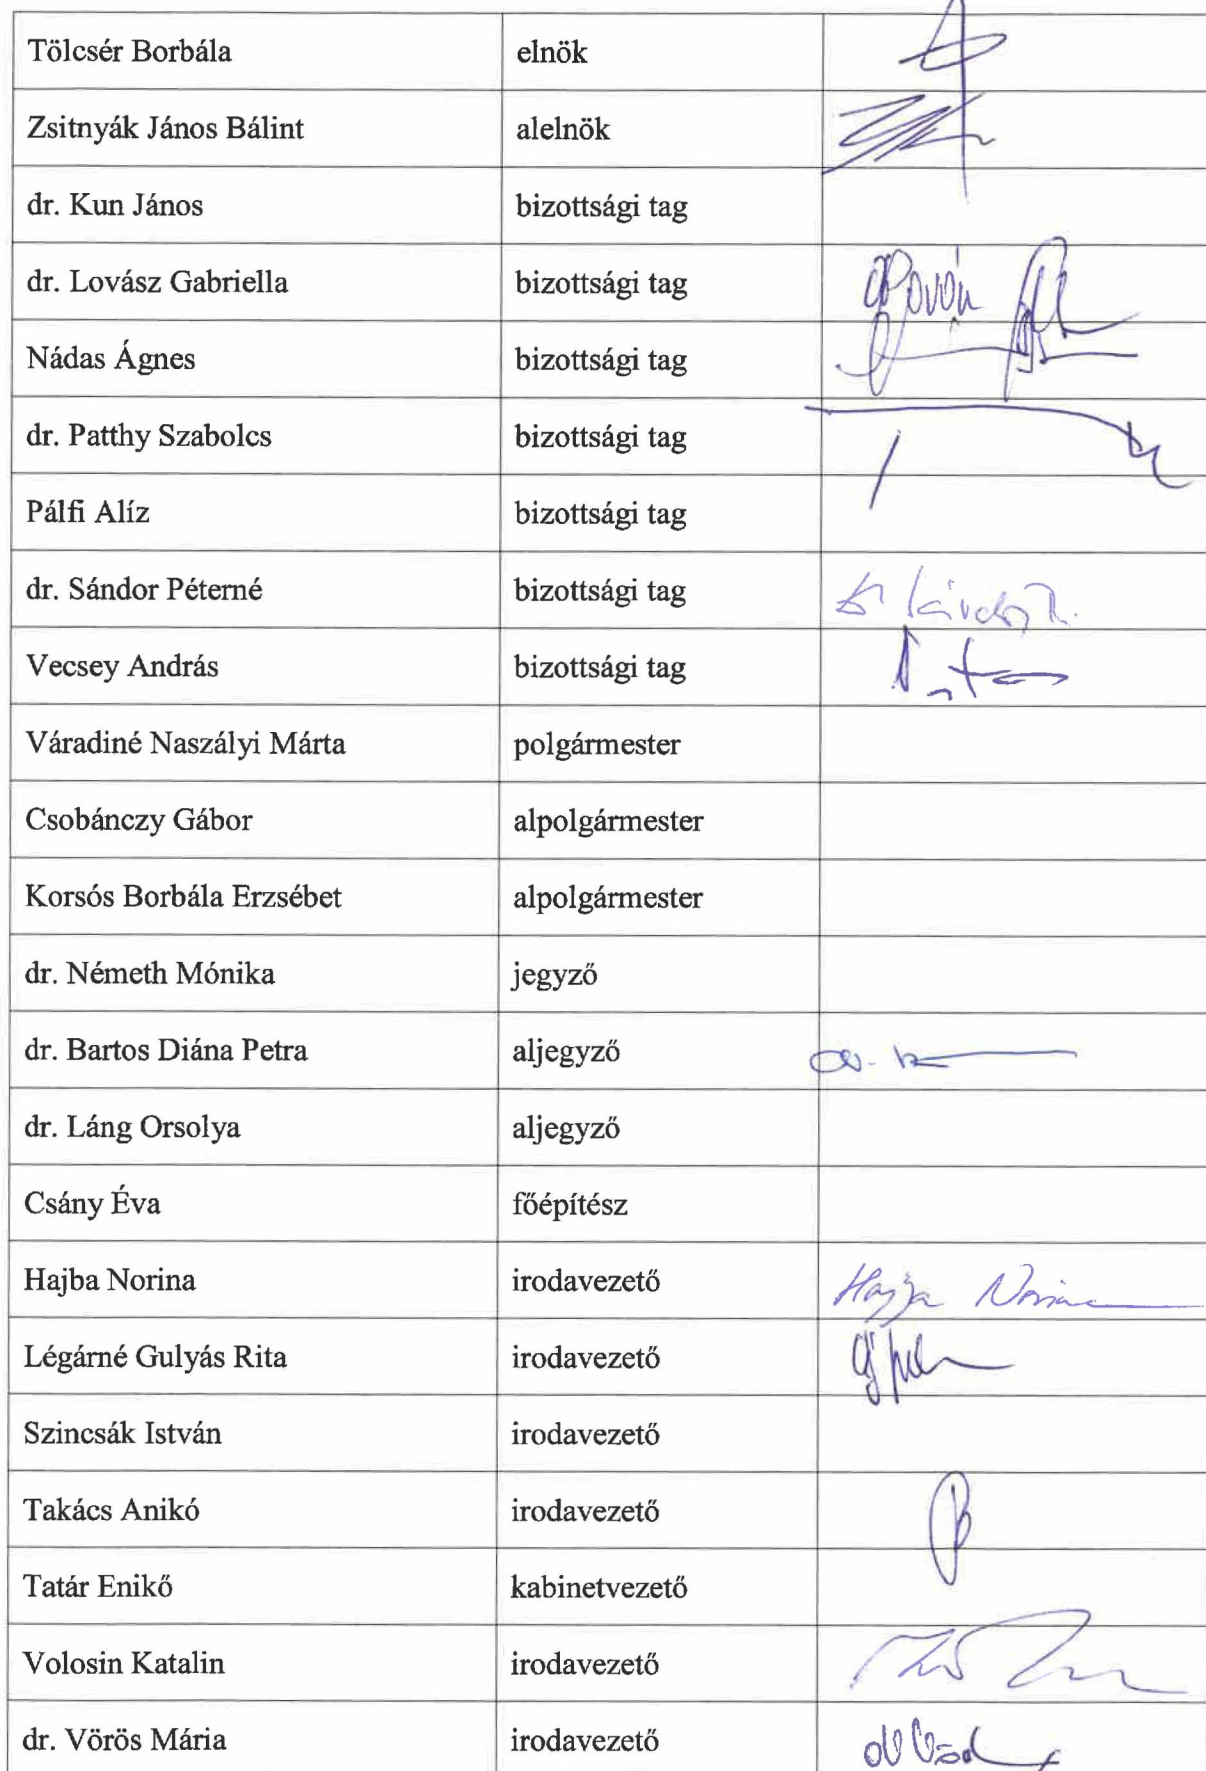 Tölcsér Borbála elnök
Zsitnyák János Bálint alelnök
dr. Kun János bizottsági tag
dr. Lovász Gabriella bizottsági tag
Nádas Ágnes bizottsági tag
dr. Patthy Szabolcs bizottsági tag
Pálfi Alíz bizottsági tag
dr. Sándor Péterné bizottsági tag
Vecsey András bizottsági tag
Váradiné Naszályi Márta polgármester
Csobánczy Gábor alpolgármester
Korsós Borbála Erzsébet alpolgármester
dr. Németh Mónika jegyző
dr. Bartos Diána Petra aljegyző
dr. Láng Orsolya aljegyző
Csány Éva főépítész
Hajba Norina irodavezető Hajba Norina
Légárné Gulyás Rita irodavezető
Szincsák István irodavezető
Takács Anikó irodavezető
Tatár Enikő kabinetvezető
Volosin Katalin irodavezető
dr. Vörös Mária irodavezető